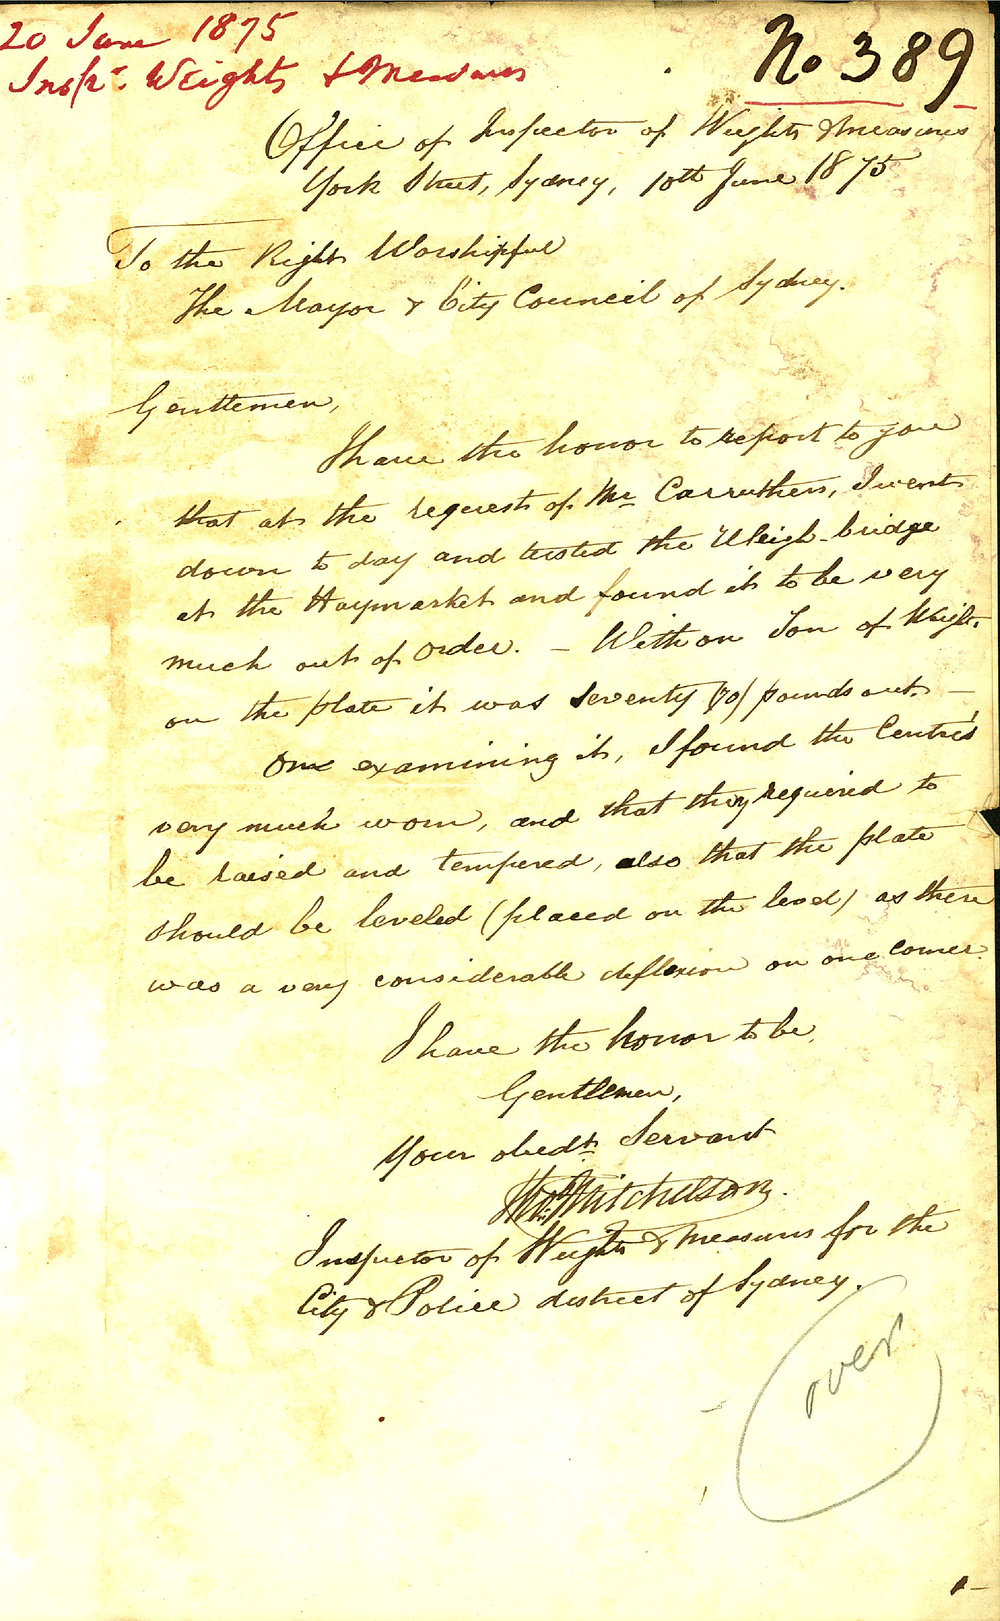 20 June 1875
Inspr. Weights & Measures
No 389
Office of Inspector of Weights & Measures
York Street, Sydney, 10th June 1875
To the Right Worshipful
The Mayor & City Council of Sydney.
Gentlemen,
I have the honor to report to you
that at the request of Mr Carruthers, I went
down to day and tested the Weigh-bridge
at the Haymarket and found it to be very
much out of order. — With on Ton of Weight
on the plate it was seventy (70) pounds out. —
One examining it, I found the Centres
very much worn, and that they required to
be raised and tempered, also that the plate
should be leveled (placed on the level) as there
was a very considerable deflexion on one corner.
I have the honor to be,
Gentlemen,
Your obedt. Servant
Mitchelson.
Inspector of Weights & Measures for the
City & Police district of Sydney.
over